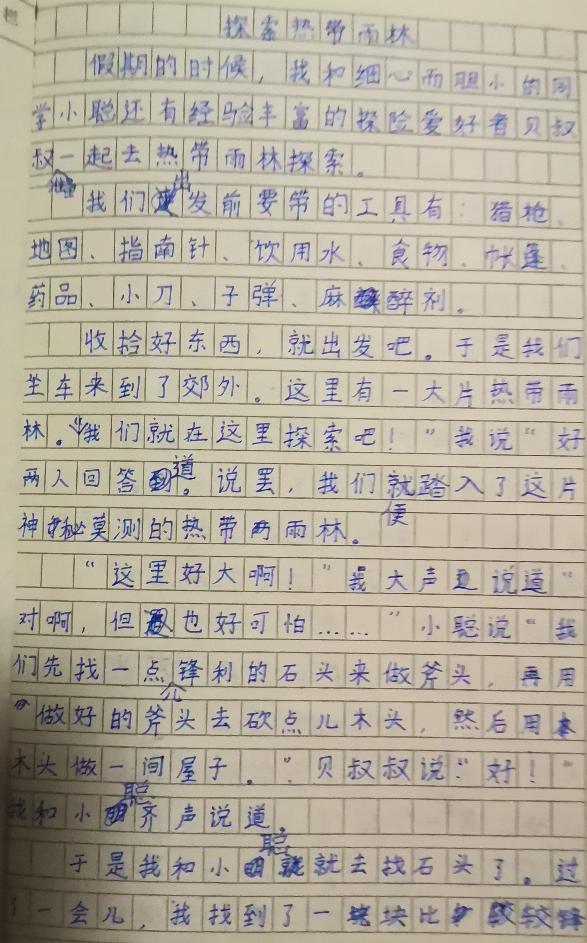 探索热带雨林
假期的时候，我和细心而胆小的同
学小聪还有经验丰富的探险爱好者贝叔
叔一起去热带雨林探索。
我们出发前要带的工具有：猎枪、
地图、指南针、饮用水、食物、帐篷、
药品、小刀、子弹、麻醉剂。
收拾好东西，就出发吧。于是我们
坐车来到了郊外。这里有一大片热带雨
林。“我们就在这里探索吧！”我说“好
两人回答道。说罢，我们便踏入了这片
神秘莫测的热带雨林。
“这里好大啊！”我大声说道“
对啊，但也好可怕……”小聪说“我
们先找一点锋利的石头来做斧头，再用
做好的斧头去砍点儿木头，然后用
木头做一间屋子。”贝叔叔说“好！”
我和小聪齐声说道
于是我和小聪就去找石头了。过
了一会儿，我找到了一块比较锋